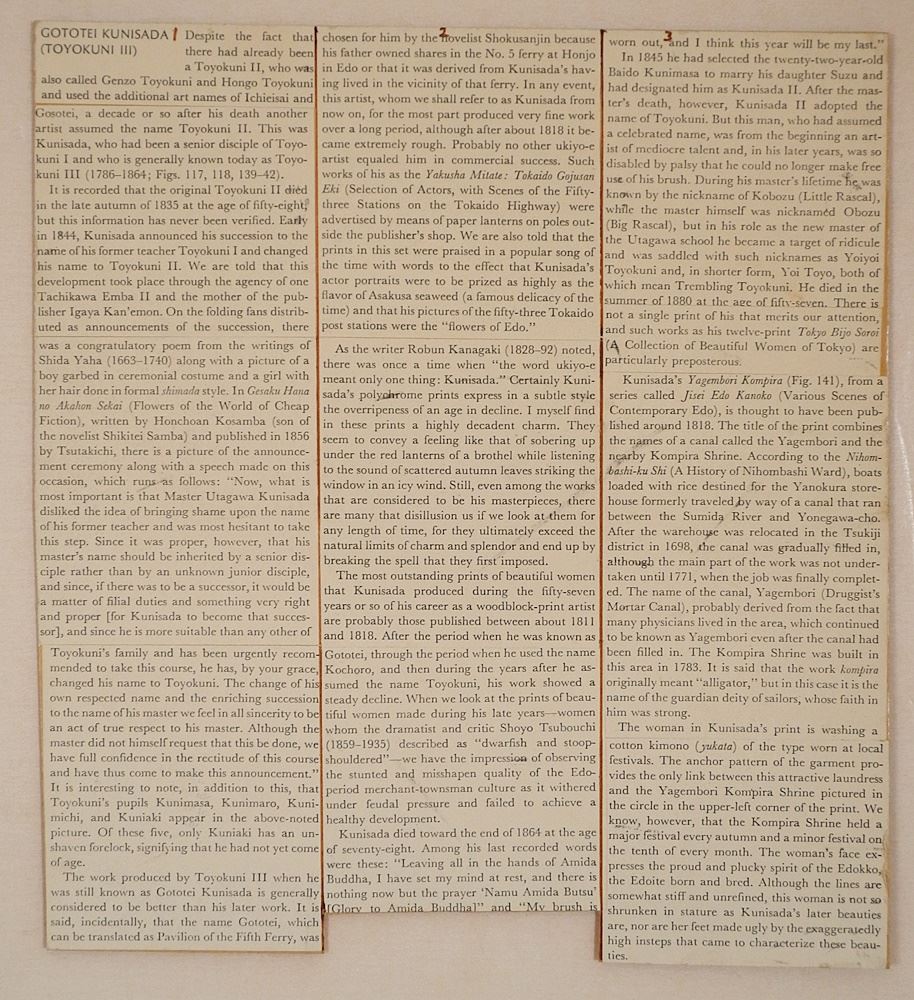 GOTOTEI KUNISADA 1 Despite the fact that
(TOYOKUNI III) there had already been
a Toyokuni II, who was
also called Genzo Toyokuni and Hongo Toyokuni
and used the additional art names of Ichieisai and
Gosotei, a decade or so after his death another
artist assumed the name Toyokuni II. This was
Kunisada, who had been a senior disciple of Toyo-
kuni I and who is generally known today as Toyo-
kuni III (1786–1864; Figs. 117, 118, 139–42).
It is recorded that the original Toyokuni II died
in the late autumn of 1835 at the age of fifty-eight,
but this information has never been verified. Early
in 1844, Kunisada announced his succession to the
name of his former teacher Toyokuni I and changed
his name to Toyokuni II. We are told that this
development took place through the agency of one
Tachikawa Emba II and the mother of the pub-
lisher Igaya Kan'emon. On the folding fans distrib-
uted as announcements of the succession, there
was a congratulatory poem from the writings of
Shida Yaha (1663–1740) along with a picture of a
boy garbed in ceremonial costume and a girl with
her hair done in formal shimada style. In Gesaku Hana
no Akahon Sekai (Flowers of the World of Cheap
Fiction), written by Honchoan Kosamba (son of
the novelist Shikitei Samba) and published in 1856
by Tsutakichi, there is a picture of the announce-
ment ceremony along with a speech made on this
occasion, which runs as follows: "Now, what is
most important is that Master Utagawa Kunisada
disliked the idea of bringing shame upon the name
of his former teacher and was most hesitant to take
this step. Since it was proper, however, that his
master's name should be inherited by a senior dis-
ciple rather than by an unknown junior disciple,
and since, if there was to be a successor, it would be
a matter of filial duties and something very right
and proper [for Kunisada to become that succes-
sor], and since he is more suitable than any other of
Toyokuni's family and has been urgently recom-
mended to take this course, he has, by your grace,
changed his name to Toyokuni. The change of his
own respected name and the enriching succession
to the name of his master we feel in all sincerity to be
an act of true respect to his master. Although the
master did not himself request that this be done, we
have full confidence in the rectitude of this course
and have thus come to make this announcement."
It is interesting to note, in addition to this, that
Toyokuni's pupils Kunimasa, Kunimaro, Kuni-
michi, and Kuniaki appear in the above-noted
picture. Of these five, only Kuniaki has an un-
shaven forelock, signifying that he had not yet come
of age.
The work produced by Toyokuni III when he
was still known as Gototei Kunisada is generally
considered to be better than his later work. It is
said, incidentally, that the name Gototei, which
can be translated as Pavilion of the Fifth Ferry, was
2
chosen for him by the novelist Shokusanjin because
his father owned shares in the No. 5 ferry at Honjo
in Edo or that it was derived from Kunisada's hav-
ing lived in the vicinity of that ferry. In any event,
this artist, whom we shall refer to as Kunisada from
now on, for the most part produced very fine work
over a long period, although after about 1818 it be-
came extremely rough. Probably no other ukiyo-e
artist equaled him in commercial success. Such
works of his as the Yakusha Mitate: Tokaido Gojusan
Eki (Selection of Actors, with Scenes of the Fifty-
three Stations on the Tokaido Highway) were
advertised by means of paper lanterns on poles out-
side the publisher's shop. We are also told that the
prints in this set were praised in a popular song of
the time with words to the effect that Kunisada's
actor portraits were to be prized as highly as the
flavor of Asakusa seaweed (a famous delicacy of the
time) and that his pictures of the fifty-three Tokaido
post stations were the "flowers of Edo."
As the writer Robun Kanagaki (1828–92) noted,
there was once a time when "the word ukiyo-e
meant only one thing: Kunisada." Certainly Kuni-
sada's polychrome prints express in a subtle style
the overripeness of an age in decline. I myself find
in these prints a highly decadent charm. They
seem to convey a feeling like that of sobering up
under the red lanterns of a brothel while listening
to the sound of scattered autumn leaves striking the
window in an icy wind. Still, even among the works
that are considered to be his masterpieces, there
are many that disillusion us if we look at them for
any length of time, for they ultimately exceed the
natural limits of charm and splendor and end up by
breaking the spell that they first imposed.
The most outstanding prints of beautiful women
that Kunisada produced during the fifty-seven
years or so of his career as a woodblock-print artist
are probably those published between about 1811
and 1818. After the period when he was known as
Gototei, through the period when he used the name
Kochoro, and then during the years after he as-
sumed the name Toyokuni, his work showed a
steady decline. When we look at the prints of beau-
tiful women made during his late years—women
whom the dramatist and critic Shoyo Tsubouchi
(1859–1935) described as "dwarfish and stoop-
shouldered"—we have the impression of observing
the stunted and misshapen quality of the Edo-
period merchant-townsman culture as it withered
under feudal pressure and failed to achieve a
healthy development.
Kunisada died toward the end of 1864 at the age
of seventy-eight. Among his last recorded words
were these: "Leaving all in the hands of Amida
Buddha, I have set my mind at rest, and there is
nothing now but the prayer 'Namu Amida Butsu'
[Glory to Amida Buddha]" and "My brush is
3
worn out, and I think this year will be my last."
In 1845 he had selected the twenty-two-year-old
Baido Kunimasa to marry his daughter Suzu and
had designated him as Kunisada II. After the mas-
ter's death, however, Kunisada II adopted the
name of Toyokuni. But this man, who had assumed
a celebrated name, was from the beginning an art-
ist of mediocre talent and, in his later years, was so
disabled by palsy that he could no longer make free
use of his brush. During his master's lifetime he was
known by the nickname of Kobozu (Little Rascal),
while the master himself was nicknamed Obozu
(Big Rascal), but in his role as the new master of
the Utagawa school he became a target of ridicule
and was saddled with such nicknames as Yoiyoi
Toyokuni and, in shorter form, Yoi Toyo, both of
which mean Trembling Toyokuni. He died in the
summer of 1880 at the age of fifty-seven. There is
not a single print of his that merits our attention,
and such works as his twelve-print Tokyo Bijo Soroi
(A Collection of Beautiful Women of Tokyo) are
particularly preposterous.
Kunisada's Yagembori Kompira (Fig. 141), from a
series called Jisei Edo Kanoko (Various Scenes of
Contemporary Edo), is thought to have been pub-
lished around 1818. The title of the print combines
the names of a canal called the Yagembori and the
nearby Kompira Shrine. According to the Nihom-
bashi-ku Shi (A History of Nihombashi Ward), boats
loaded with rice destined for the Yanokura store-
house formerly traveled by way of a canal that ran
between the Sumida River and Yonegawa-cho.
After the warehouse was relocated in the Tsukiji
district in 1698, the canal was gradually filled in,
although the main part of the work was not under-
taken until 1771, when the job was finally complet-
ed. The name of the canal, Yagembori (Druggist's
Mortar Canal), probably derived from the fact that
many physicians lived in the area, which continued
to be known as Yagembori even after the canal had
been filled in. The Kompira Shrine was built in
this area in 1783. It is said that the work kompira
originally meant "alligator," but in this case it is the
name of the guardian deity of sailors, whose faith in
him was strong.
The woman in Kunisada's print is washing a
cotton kimono (yukata) of the type worn at local
festivals. The anchor pattern of the garment pro-
vides the only link between this attractive laundress
and the Yagembori Kompira Shrine pictured in
the circle in the upper-left corner of the print. We
know, however, that the Kompira Shrine held a
major festival every autumn and a minor festival on
the tenth of every month. The woman's face ex-
presses the proud and plucky spirit of the Edokko,
the Edoite born and bred. Although the lines are
somewhat stiff and unrefined, this woman is not so
shrunken in stature as Kunisada's later beauties
are, nor are her feet made ugly by the exaggeratedly
high insteps that came to characterize these beau-
ties.